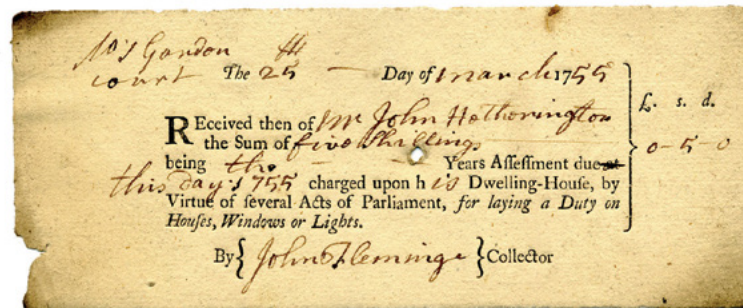 Mrs Gardon
court The 25th — Day of march 1755
£. s. d.
REceived then of Mr John Hetherington
the Sum of five shillings 0-5-0
being the Years Aſſeſſment due at
this day 1755 charged upon h is Dwelling-Houſe, by
Virtue of ſeveral Acts of Parliament, for laying a Duty on
Houſes, Windows or Lights.
By { John Fleminge } Collector